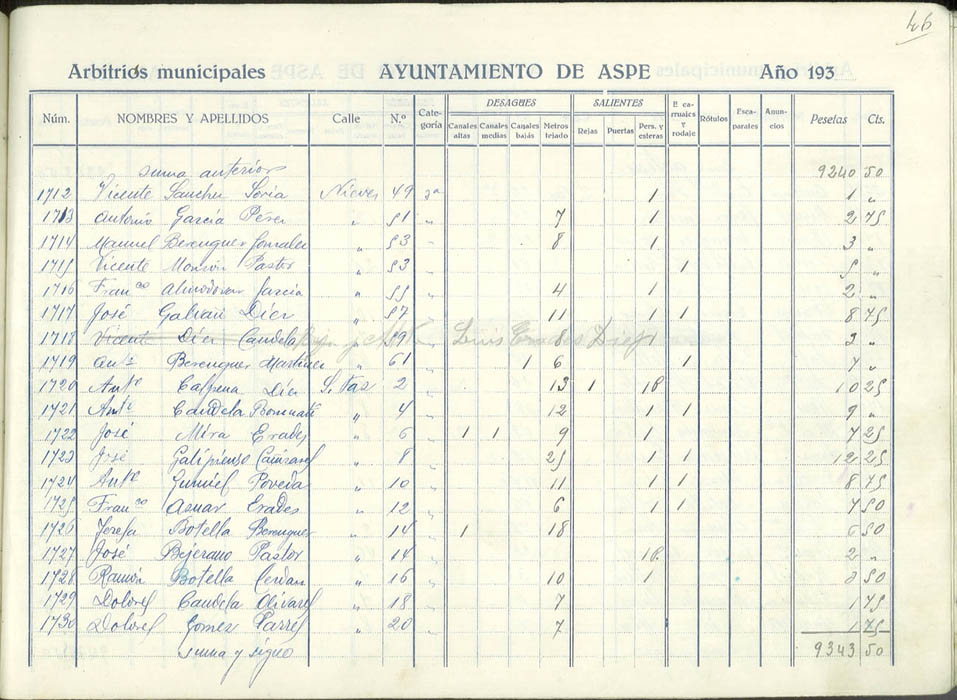 46
Arbitrios municipales AYUNTAMIENTO DE ASPE Año 193
Núm. NOMBRES Y APELLIDOS Calle N.º Cate-goría DESAGUES Canales altas Canales medias Canales bajas Metros tejado SALIENTES Rejas Puertas Pers. y esteras E carruajes y rodaje Rótulos Esca-parates Anun-cios Pesetas Cts.
suma anterior 9240 50
1712 Vicente Sanchez Soria Nieves 49 3ª 1 1 "
1713 Antonio García Pérez " 51 " 7 1 2 75
1714 Manuel Berenguer Gonzalez " 53 " 8 1 3 "
1715 Vicente Monzón Pastor " 53 " 1 5 "
1716 Franco Almodovar García " 55 " 4 1 2 "
1717 José Galvañ Díez " 57 " 11 1 1 8 75
1718 Vicente Díez Candela Luis Erades Díez 59 8 1 3 "
1719 Antº Berenguer Martinez " 61 " 1 6 1 7 "
1720 Antº Calpena Díez 2 " 13 1 1P 10 25
1721 Antº Candela " 4 " 12 1 1 9 "
1722 José Mira Erades " 6 " 1 1 9 1 7 25
1723 José Galipienso Cañizares " 8 " 25 1 1 12 25
1724 Antº Gumiel Poveda " 10 " 11 1 1 8 75
1725 Franco Aznar Erades " 12 " 6 1 1 7 50
1726 Josefa Botella Berenguer " 14 " 1 18 6 50
1727 José Bejerano Pastor " 14 " 1P 2 "
1728 Ramón Botella Cerdan " 16 " 10 1 3 50
1729 Dolores Candela Olivares " 18 " 7 1 75
1730 Dolores Gomez Parres " 20 " 7 1 75
suma y sigue 9343 50